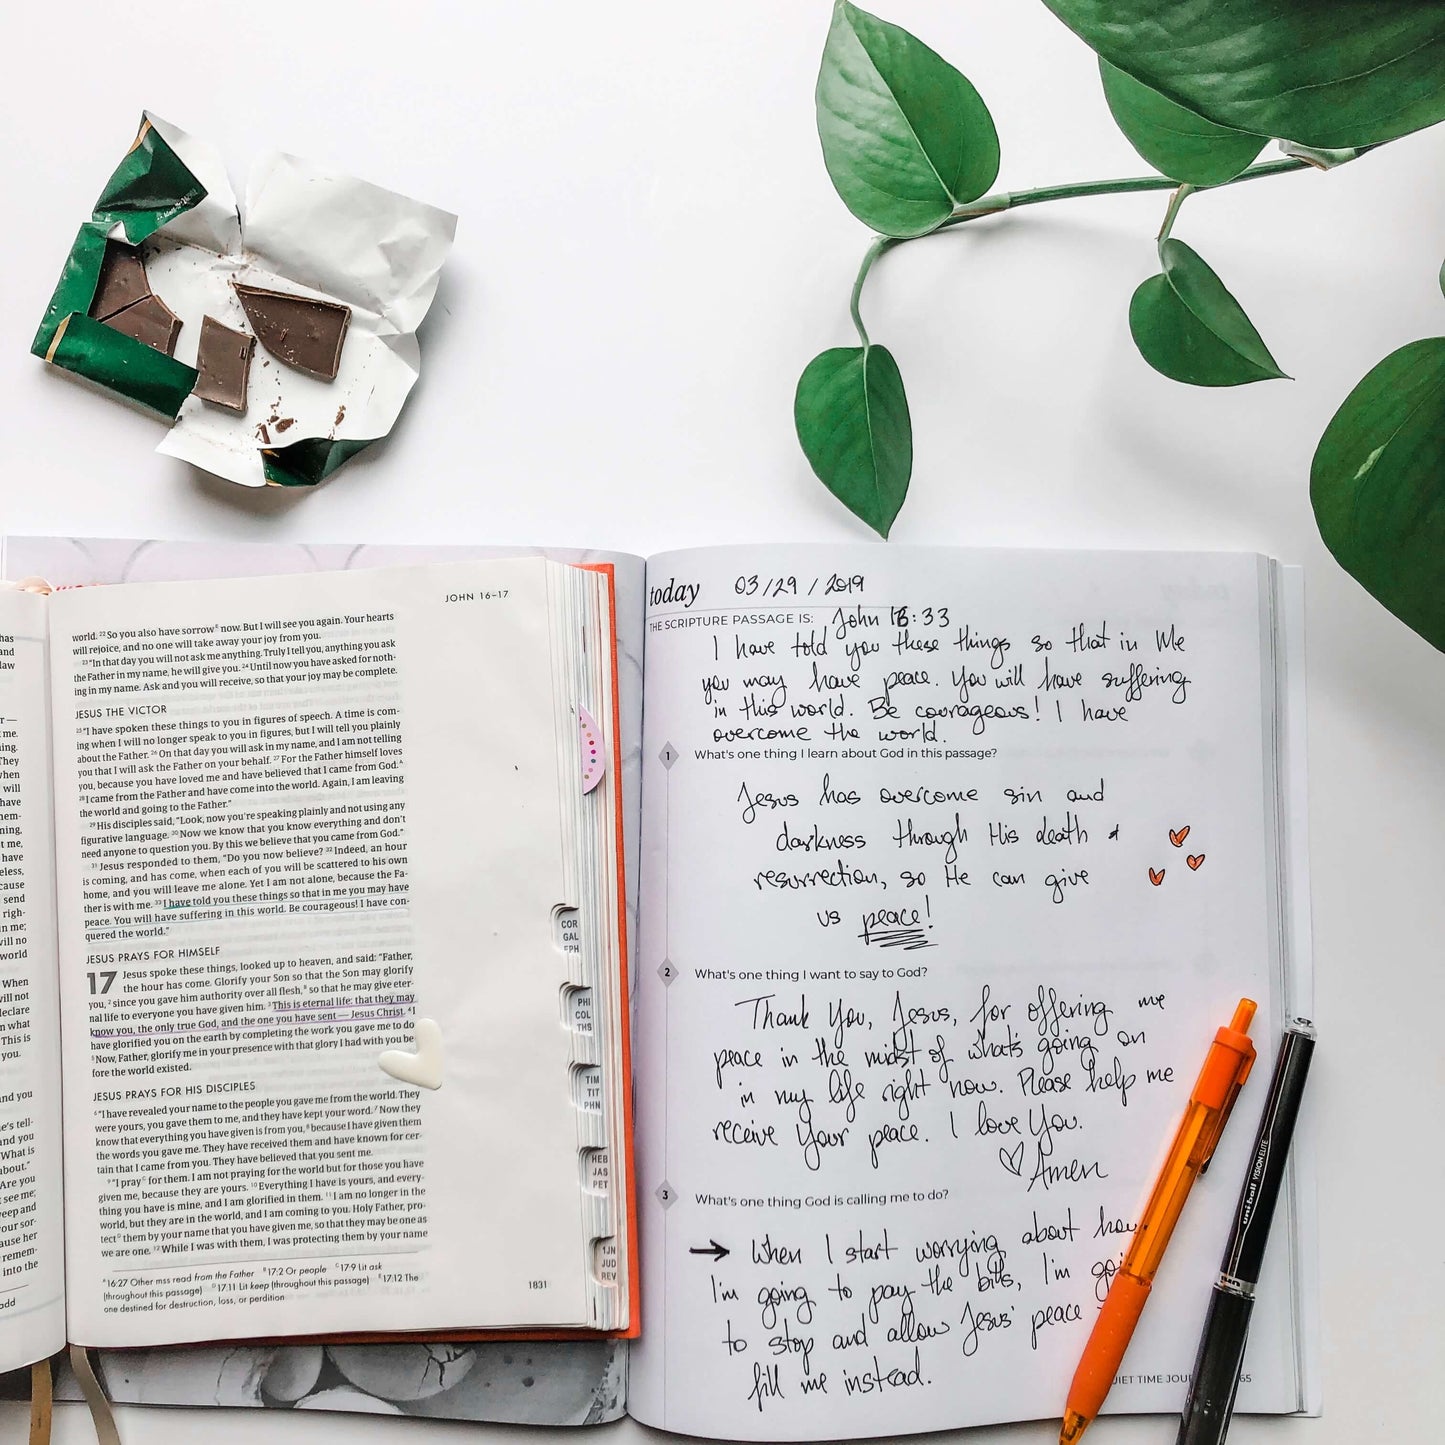 JOHN 16–17
world. 22 So you also have sorrow E now. But I will see you again. Your hearts
will rejoice, and no one will take away your joy from you.
23 "In that day you will not ask me anything. Truly I tell you, anything you ask
the Father in my name, he will give you. 24 Until now you have asked for noth-
ing in my name. Ask and you will receive, so that your joy may be complete.
JESUS THE VICTOR
25 "I have spoken these things to you in figures of speech. A time is com-
ing when I will no longer speak to you in figures, but I will tell you plainly
about the Father. 26 On that day you will ask in my name, and I am not telling
you that I will ask the Father on your behalf. 27 For the Father himself loves
you, because you have loved me and have believed that I came from God. A
28 I came from the Father and have come into the world. Again, I am leaving
the world and going to the Father."
29 His disciples said, "Look, now you're speaking plainly and not using any
figurative language. 30 Now we know that you know everything and don't
need anyone to question you. By this we believe that you came from God."
31 Jesus responded to them, "Do you now believe? 32 Indeed, an hour
is coming, and has come, when each of you will be scattered to his own
home, and you will leave me alone. Yet I am not alone, because the Fa-
ther is with me. 33 I have told you these things so that in me you may have
peace. You will have suffering in this world. Be courageous! I have con-
quered the world."
JESUS PRAYS FOR HIMSELF
17 Jesus spoke these things, looked up to heaven, and said: "Father,
the hour has come. Glorify your Son so that the Son may glorify
you, 2 since you gave him authority over all flesh, B so that he may give eter-
nal life to everyone you have given him. 3 This is eternal life: that they may
know you, the only true God, and the one you have sent — Jesus Christ. 4 I
have glorified you on the earth by completing the work you gave me to do
5 Now, Father, glorify me in your presence with that glory I had with you be
fore the world existed.
JESUS PRAYS FOR HIS DISCIPLES
6 "I have revealed your name to the people you gave me from the world. They
were yours, you gave them to me, and they have kept your word. 7 Now they
know that everything you have given is from you, 8 because I have given them
the words you gave me. They have received them and have known for cer-
tain that I came from you. They have believed that you sent me.
9 "I pray C for them. I am not praying for the world but for those you have
given me, because they are yours. 10 Everything I have is yours, and every-
thing you have is mine, and I am glorified in them. 11 I am no longer in the
world, but they are in the world, and I am coming to you. Holy Father, pro-
tect D them by your name that you have given me, so that they may be one as
we are one. 12 While I was with them, I was protecting them by your name
A 16:27 Other mss read from the Father B 17:2 Or people C 17:9 Lit ask
(throughout this passage) D 17:11 Lit keep (throughout this passage) E 17:12 The
one destined for destruction, loss, or perdition
1831
COR
GAL
EPH
PHI
COL
THS
TIM
TIT
PHN
HEB
JAS
PET
1JN
JUD
REV
today 03/29/2019
THE SCRIPTURE PASSAGE IS: John 16:33
I have told you these things so that in Me
you may have peace. You will have suffering
in this world. Be courageous! I have
overcome the world.
1 What's one thing I learn about God in this passage?
Jesus has overcome sin and
darkness through His death +
resurrection, so He can give
us peace!
2 What's one thing I want to say to God?
Thank You, Jesus, for offering me
peace in the midst of what's going on
in my life right now. Please help me
receive Your peace. I love You.
♡ Amen
3 What's one thing God is calling me to do?
→ When I start worrying about how
I'm going to pay the bills, I'm goi
to stop and allow Jesus' peace
fill me instead.
UIET TIME JOU 65
uni-ball VISION ELITE
uni